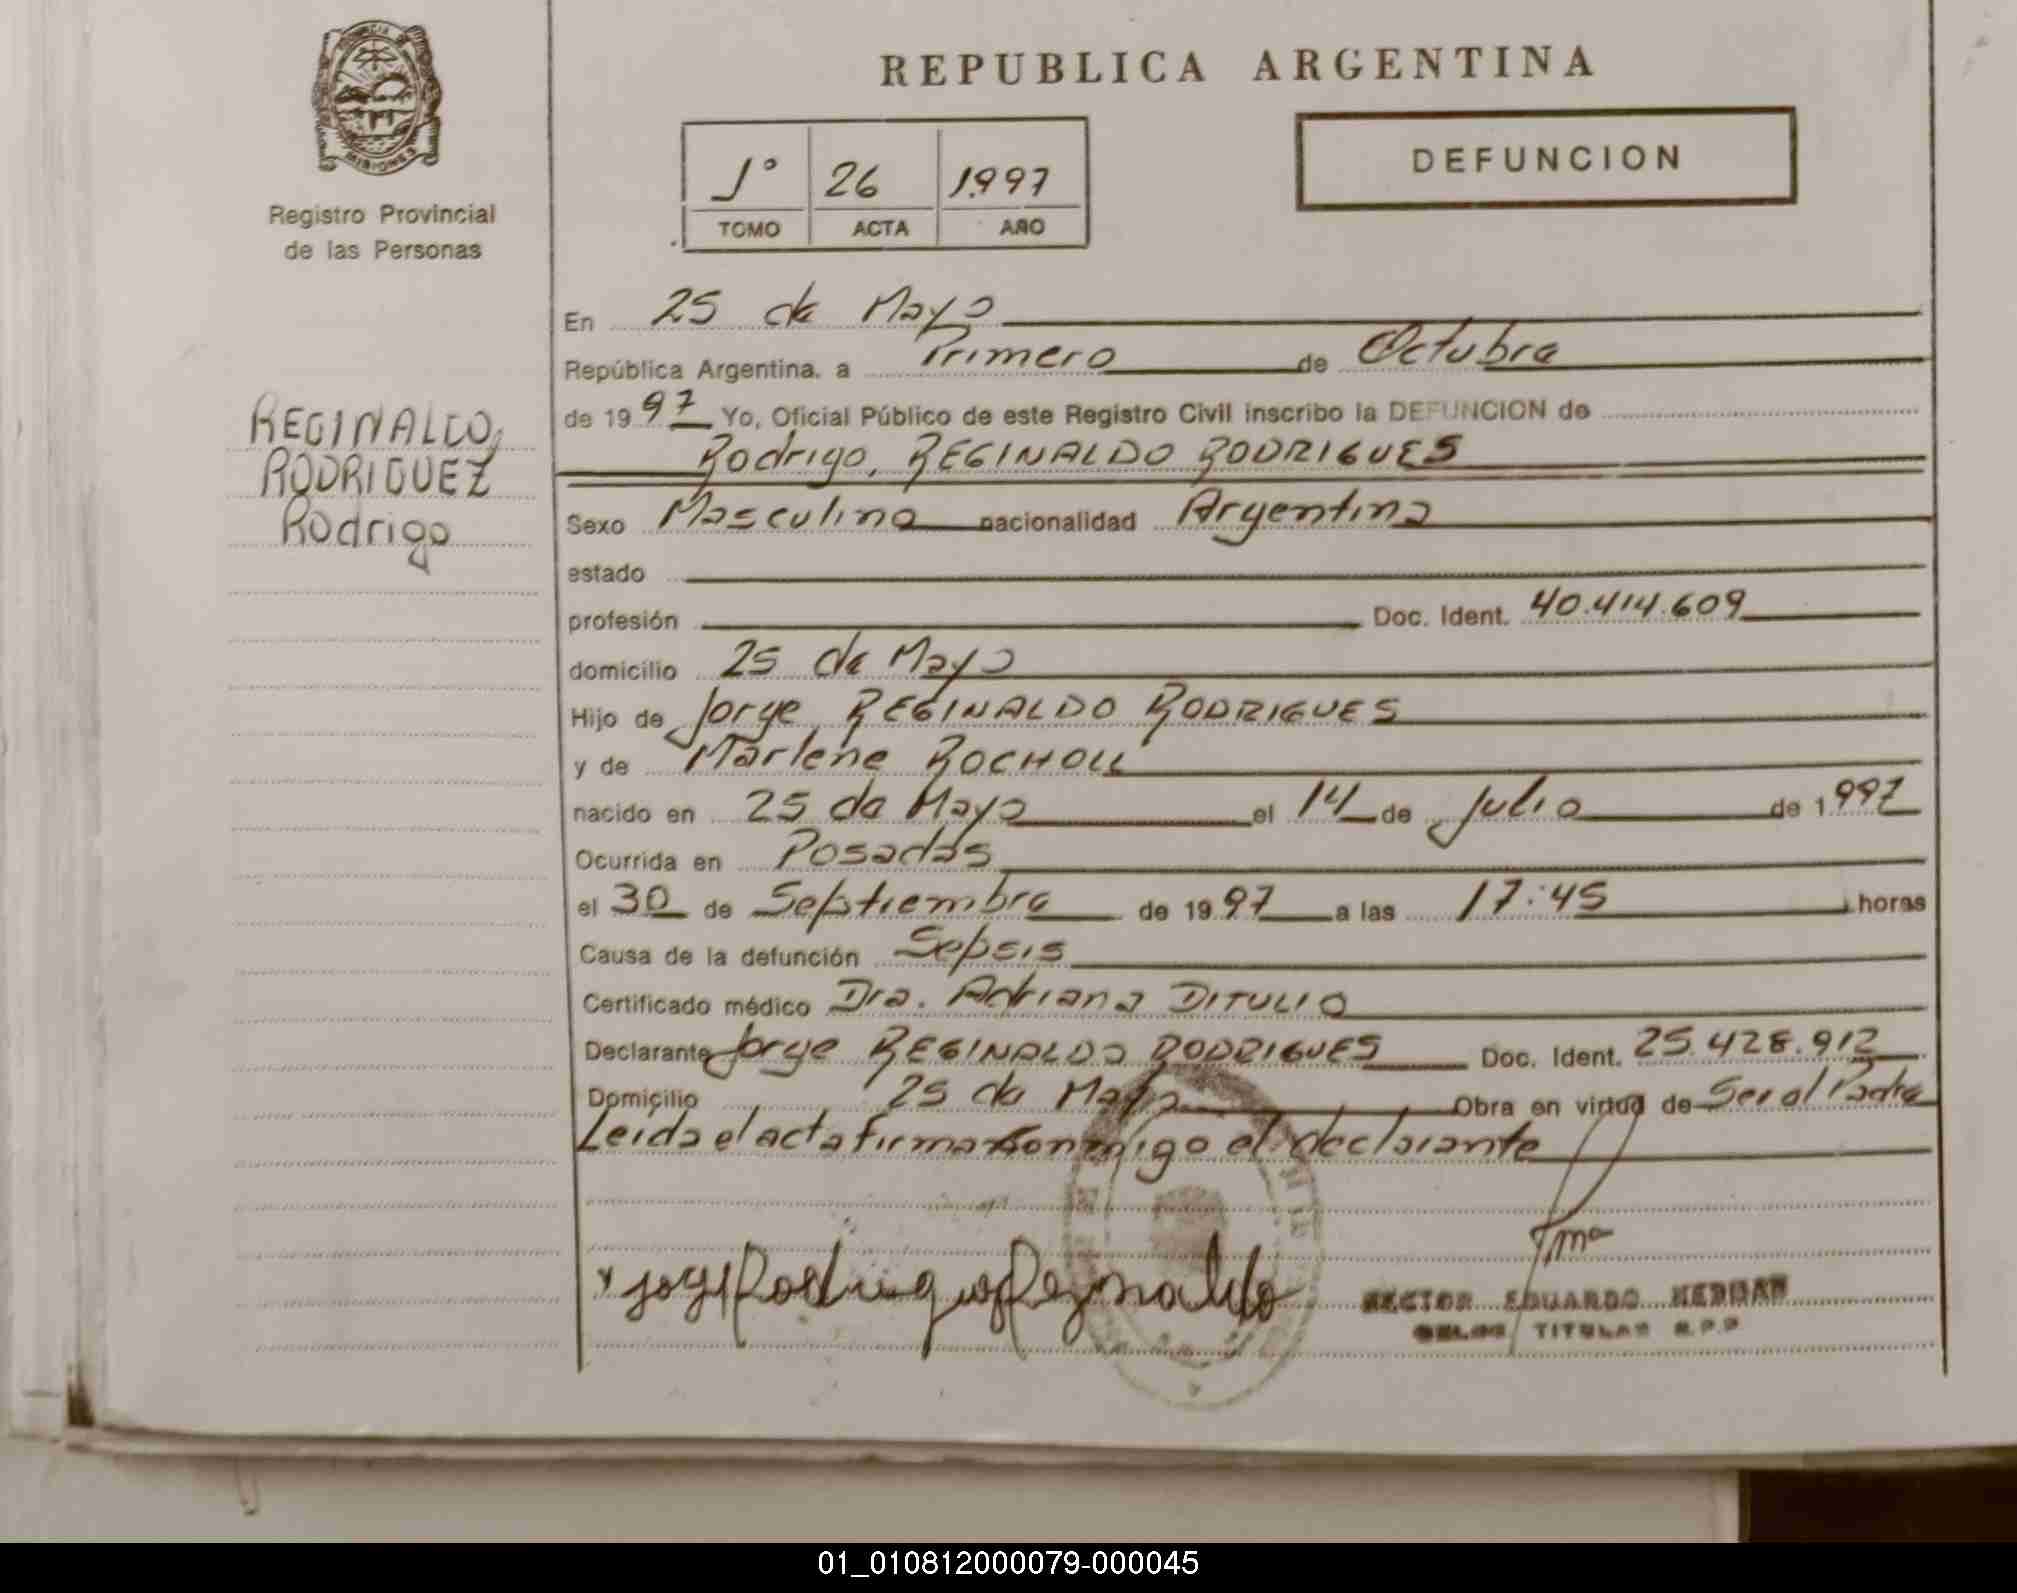 PROVINCIA DE
MISIONES
Registro Provincial
de las Personas
REPUBLICA ARGENTINA
1º 26 1997
TOMO ACTA AÑO
DEFUNCION
REGINALDO,
RODRIGUEZ
Rodrigo
En 25 de Mayo
República Argentina. a Primero de Octubre
de 1997 Yo, Oficial Público de este Registro Civil inscribo la DEFUNCION de
Rodrigo, REGINALDO RODRIGUES
Sexo Masculino nacionalidad Argentina
estado
profesión Doc. Ident. 40.414.609
domicilio 25 de Mayo
Hijo de Jorge REGINALDO RODRIGUES
y de Marlene ROCHOLL
nacido en 25 de Mayo el 14 de Julio de 1997
Ocurrida en Posadas
el 30 de Septiembre de 1997 a las 17:45 horas
Causa de la defunción Sepsis
Certificado médico Dra. Adriana DITULIO
Declarante Jorge REGINALDO RODRIGUES Doc. Ident. 25.428.912
Domicilio 25 de Mayo Obra en virtud de Ser el Padre
Leida el acta firma conmigo el declarante
HECTOR EDUARDO
TITULAR R.P.P
01_010812000079-000045